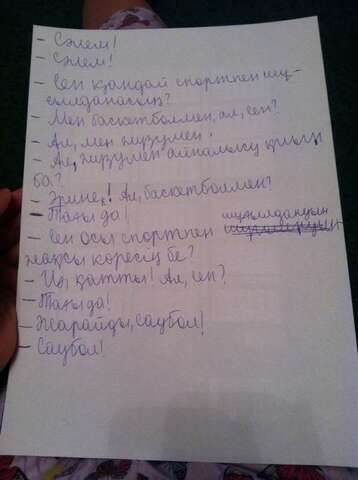 - Сәлем!
- Сәлем!
- Сен қандай спортпен шұ-
ғылданасың?
- Мен баскетболмен, ал, сен?
- Ал, мен жүзумен!
- Ал, жүзумен айналысу қиын
ба?
- Әрине! Ал, баскетболмен?
- Тағы да!
- Сен осы спортпен шұғылдануын
жақсы көресің бе?
- Иә, қатты! Ал, сен?
- Тағы да!
- Жарайды, саубол!
- Саубол!